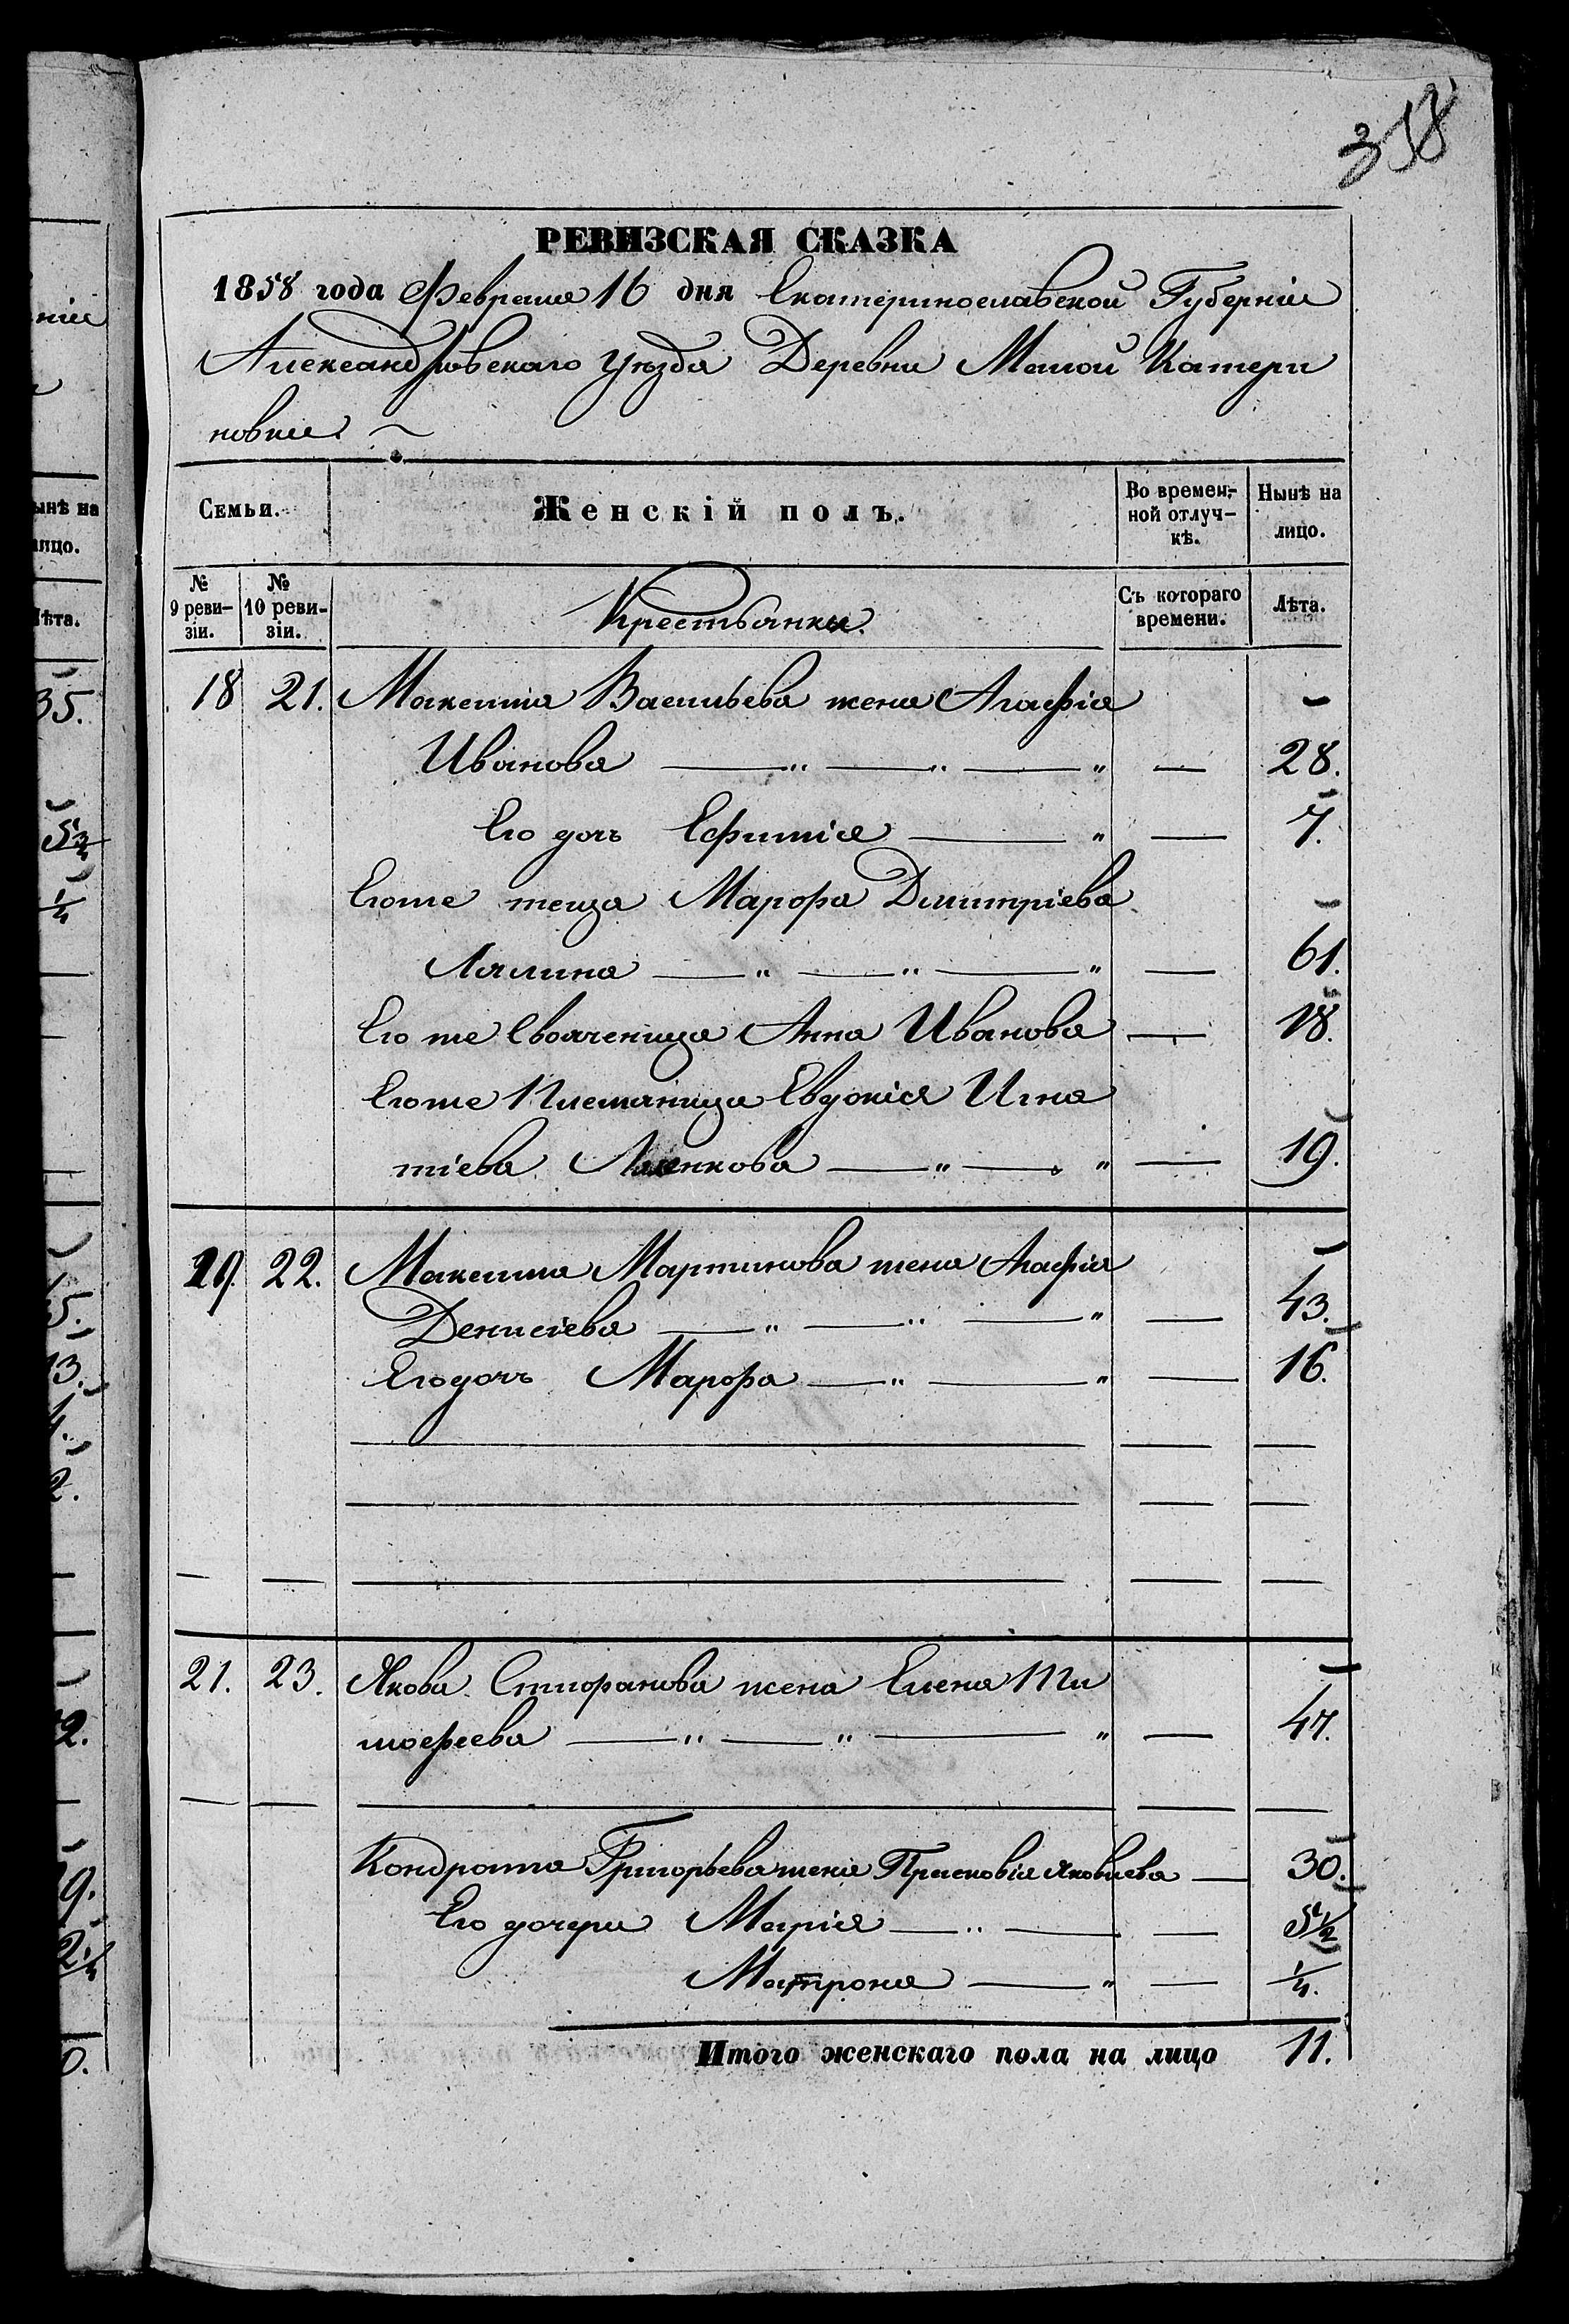 358
РЕВИЗСКАЯ СКАЗКА
1858 года Февраля 16 дня Екатеринославской Губерніи
Александровскаго Уѣзда Деревни Малой Катери
новки
Семьи.
Женскій полъ.
Во времен-
ной отлуч-
кѣ.
Нынѣ на
лицо.
№
9 реви-
зіи.
№
10 реви-
зіи.
Крестьянки.
Съ котораго
времени.
Лѣта.
18 21. Максима Васильева жена Агафія
Иванова 28.
Его дочь Ефимія 7.
Егоже теща Марфа Дмитріева
Лялина 61.
Его же Свояченица Анна Иванова 18.
Егоже Племяница Евдокія Игна
тіева 19.
19. 22. Максима Мартинова жена Агафія
Денисіева 43.
Его дочь Марфа 16.
21. 23. Якова жена Елена Ти
мофеева 47.
Кондрата Григорьева жена Прасковія Яковлева 30.
Его дочери Марія 5 1/2
Матрона 1/4.
Итого женскаго пола на лицо 11.
ніи
ынѣ на
лицо.
Лѣта.
35.
5 3/4
1/4